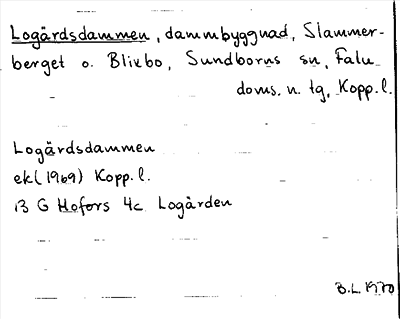 Logärdsdammen, dammbyggnad, Slammer-
berget o. Blixbo, Sundborns sn, Falu
doms. n. tg, Kopp. l.
Logärdsdammen
ek (1969) Kopp. l.
13 G Hofors 4c Logården
B.L. 1970